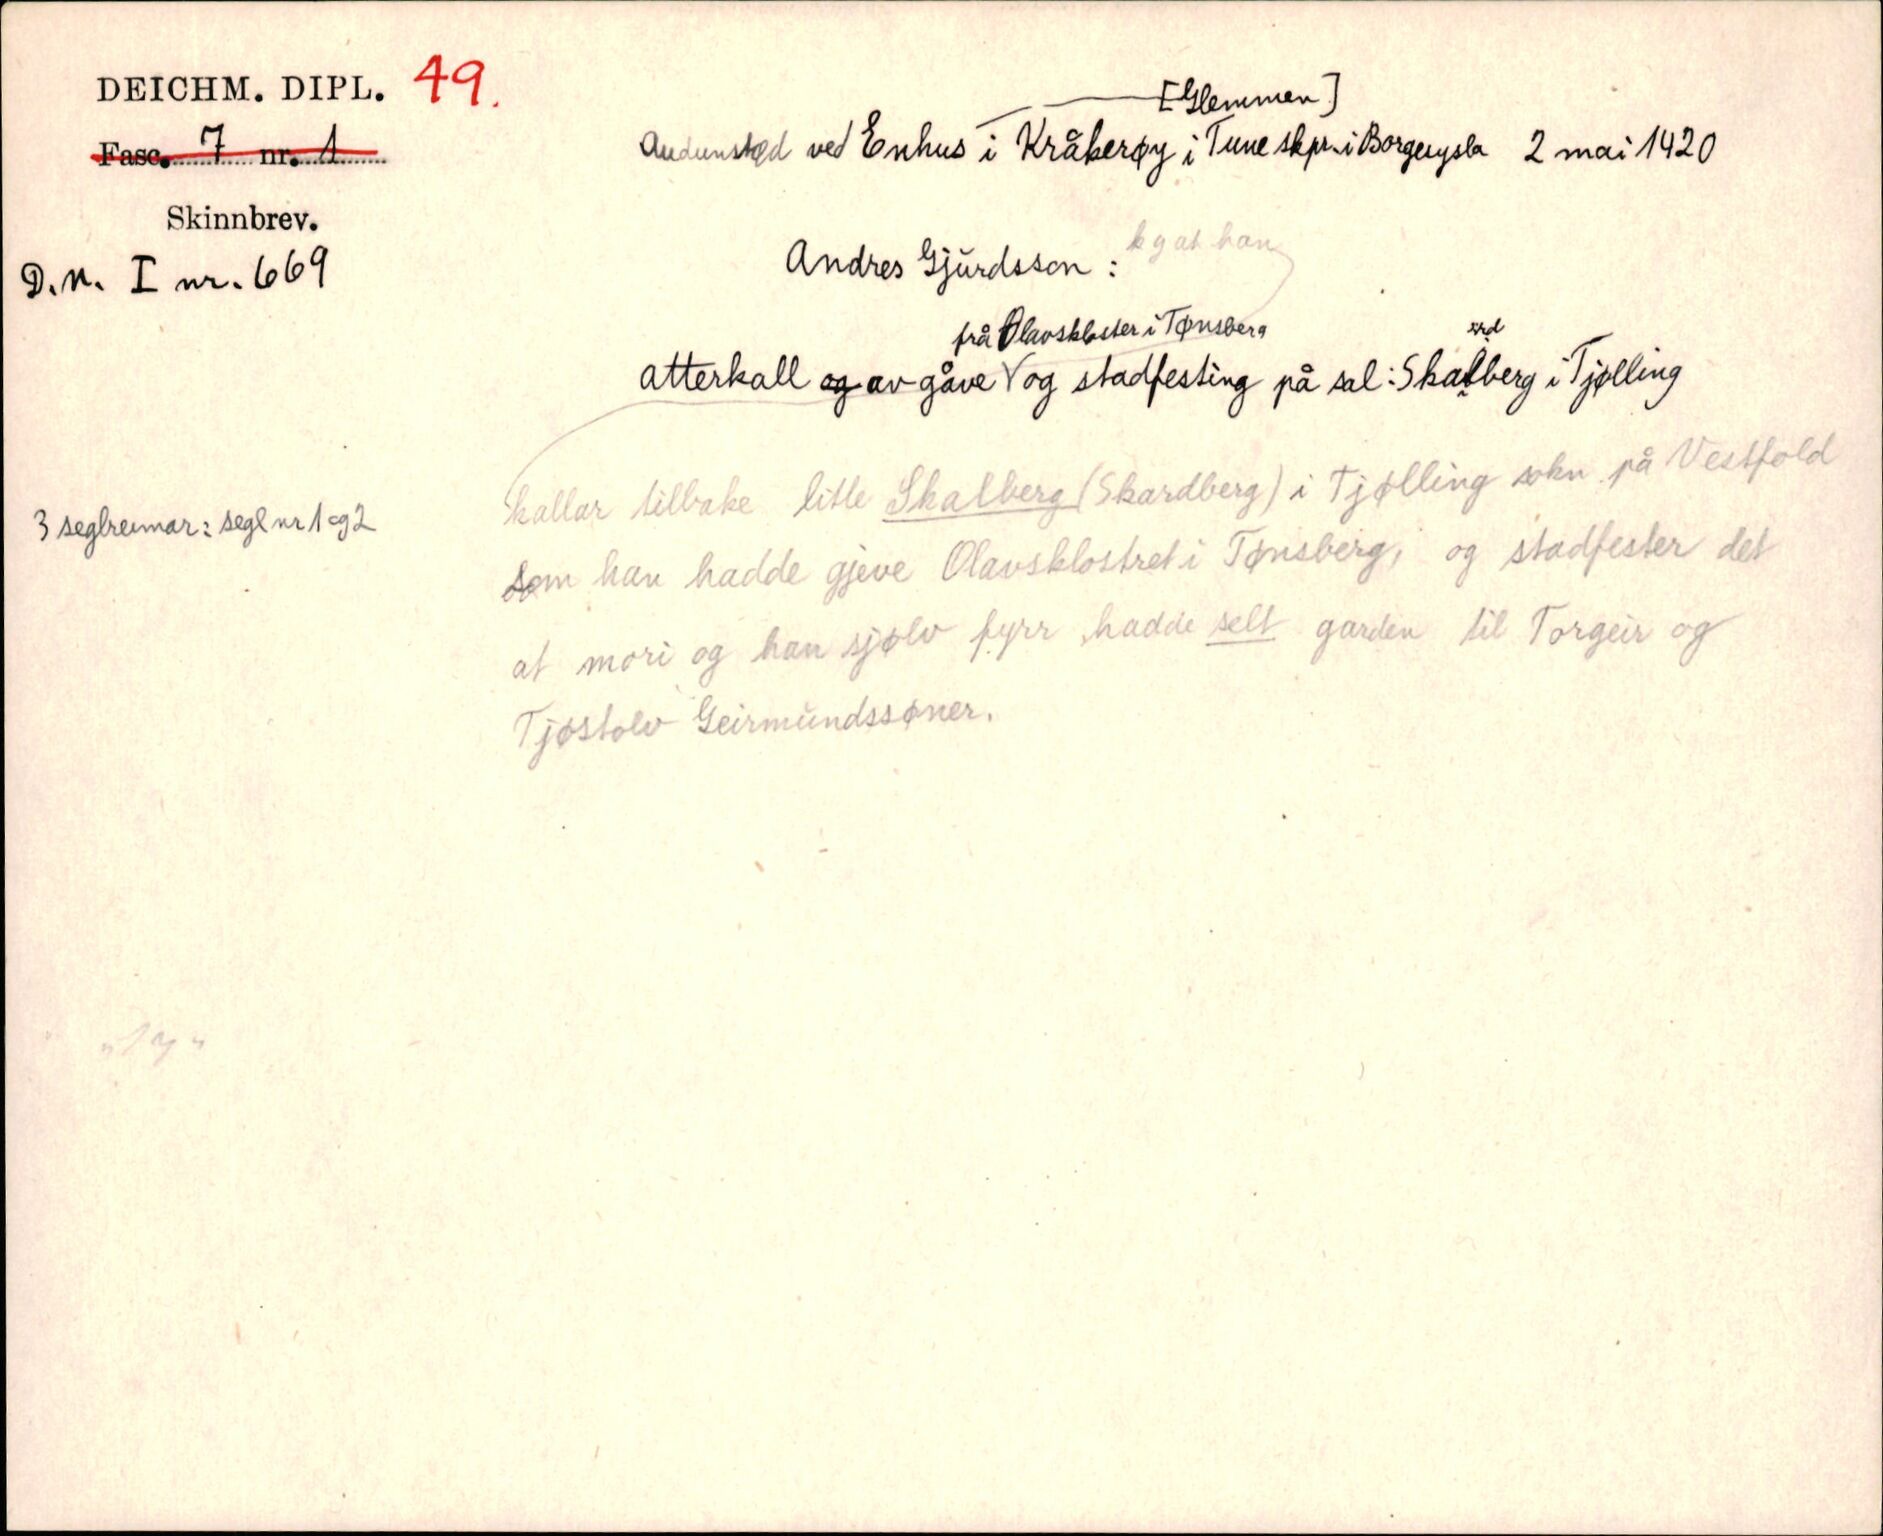 DEICHM. DIPL. 49.
Fasc. 7 nr. 1
Skinnbrev.
D.N. I nr. 669
3 seglreimar: segl nr 1 og 2
[Glemmen]
Audunstød ved Enhus i Kråkerøy i Tune skpr. i Borgesysla 2 mai 1420
kg at han
Andres Gjurdsson :
frå Olavskloster i Tønsberg
ard
atterkall og av gåve V og stadfesting på sal: Skalberg i Tjølling
kallar tilbake litle Skalberg (Skardberg) i Tjølling sokn på Vestfold
som han hadde gjeve Olavsklostret i Tønsberg, og stadfester det
at mori og han sjølv fyrr hadde selt garden til Torgeir og
Tjøstolv Geirmundssøner.